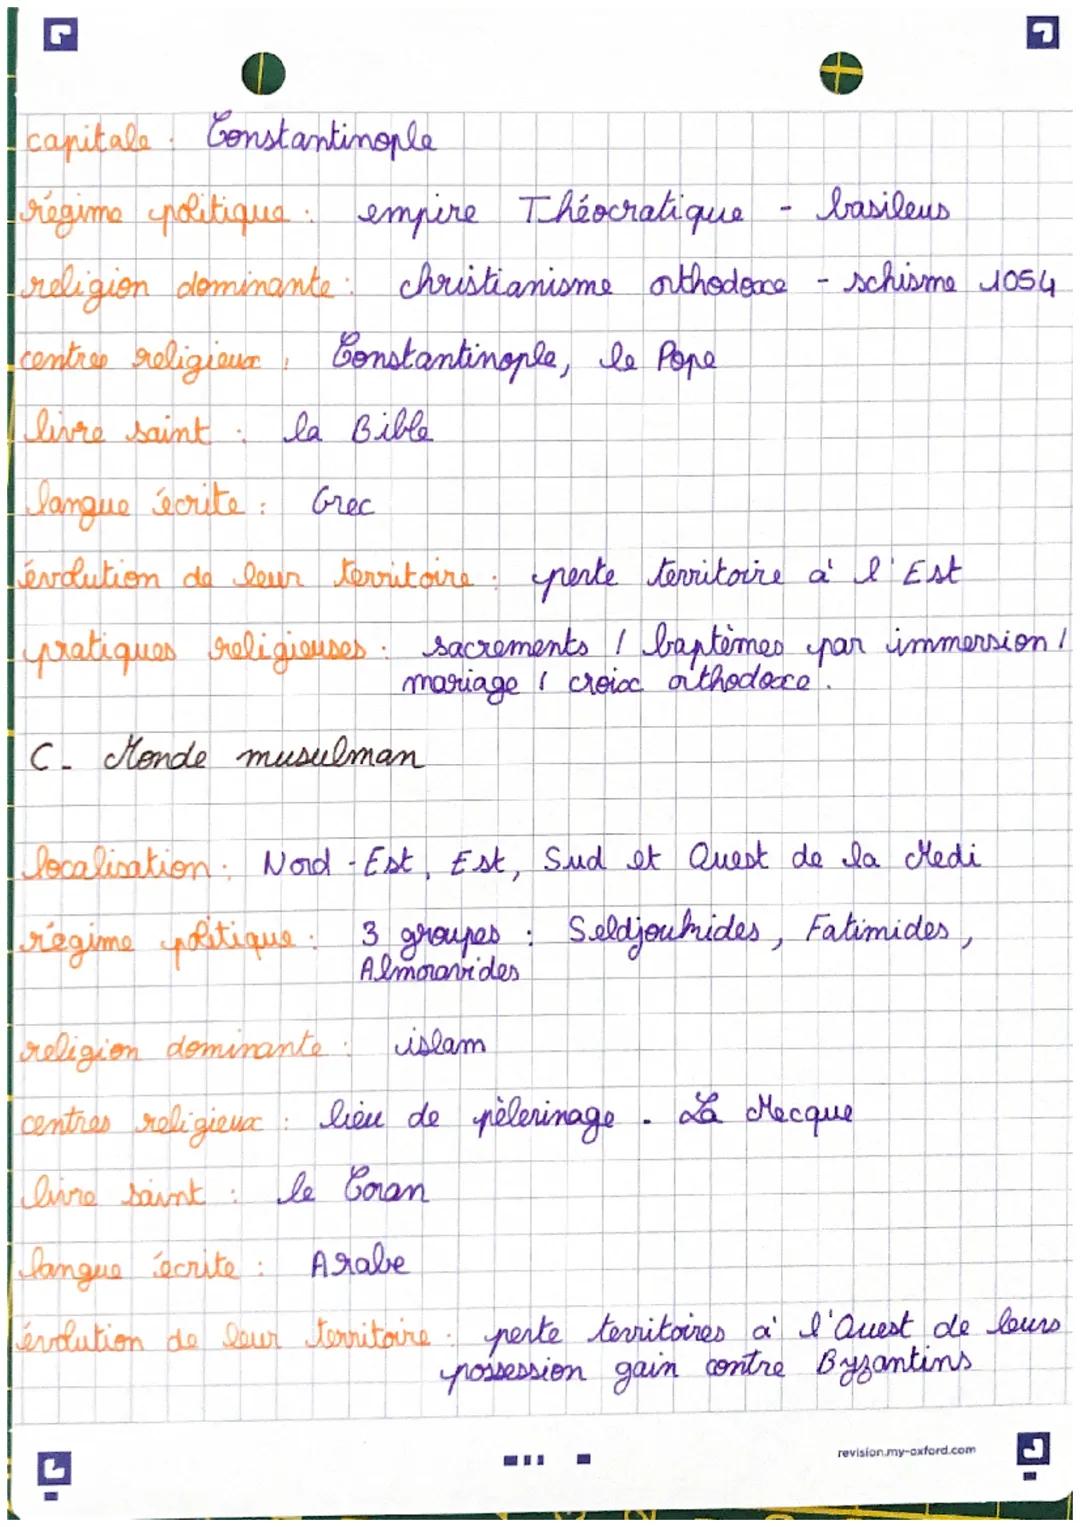 capitale : Constantinople
régime politique : empire Théocratique - basileus
religion dominante : christianisme orthodoxe - schisme 1054
centres religieux : Constantinople, le Pope
livre saint : la Bible
langue écrite : Grec
évolution de leur territoire : perte territoire à l'Est
pratiques religieuses : sacrements / baptèmes par immersion /
mariage / croix orthodoxe.
C - Monde musulman
localisation : Nord-Est, Est, Sud et Ouest de la Medi
régime politique : 3 groupes : Seldjoukides, Fatimides,
Almoravides
religion dominante : islam
centres religieux : lieu de pèlerinage - La Mecque
livre saint : le Coran
langue écrite : Arabe
évolution de leur territoire : perte territoires à l'Ouest de leurs
possession gain contre Byzantins
revision.my-oxford.com